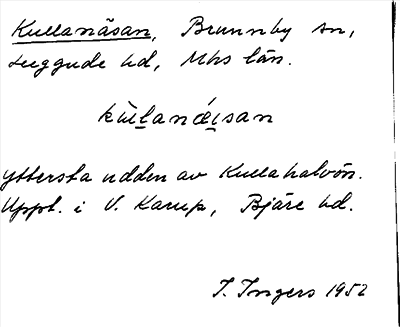 Kullanäsan, Brunnby sn,
Luggude hd, Mhs län.
kùl̲anǽi̲san
yttersta udden av Kullahalvön.
Uppt. i V. Karup, Bjäre hd.
I. Ingers 1952